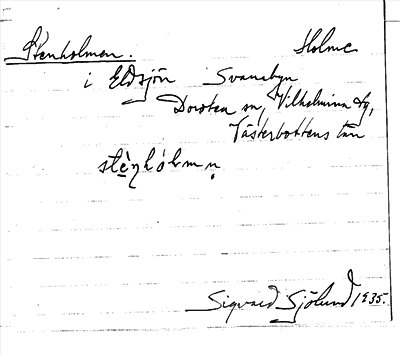 Stenholmen. Holme
i Eldsjön Svanabyn
Dorotea sn, Vilhelmina tg,
Västerbottens län
stèṇhólmṇ
Sigvard Sjölund 1935.